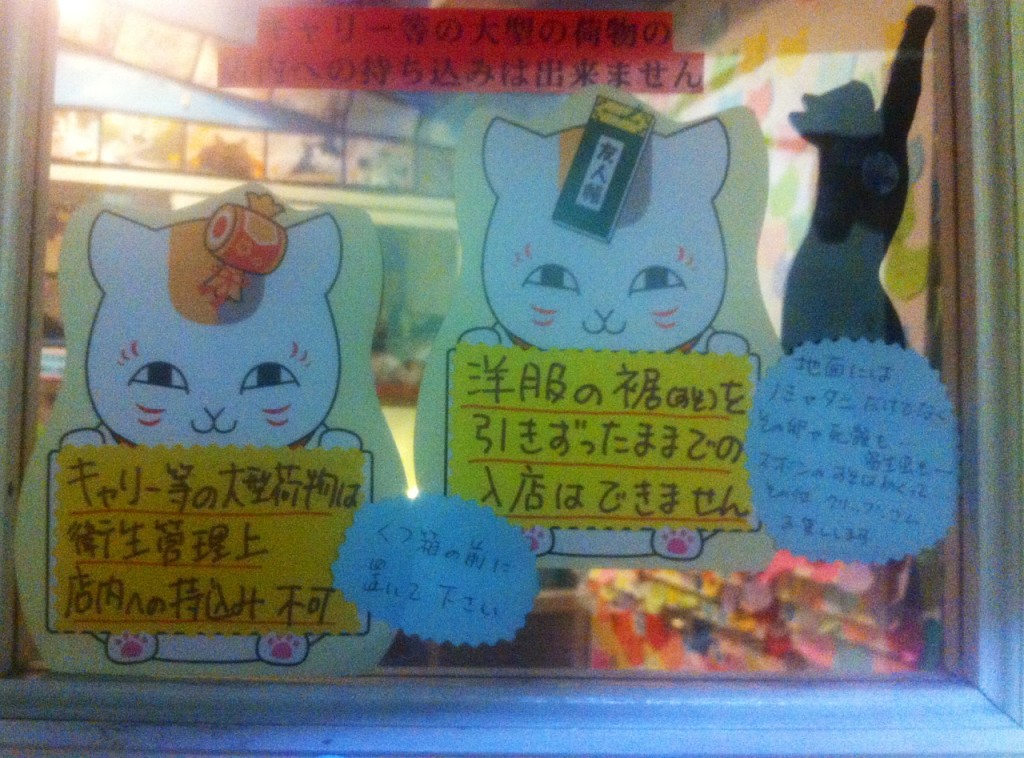 キャリー等の大型の荷物の
店内への持ち込みは出来ません
友人帳
洋服の裾(すそ)を
引きずったままでの
入店はできません
地面には
ノミやダニだけでなく
その卵や死骸も…
寄生虫も…
ズボンのすそはめくって
その他 クリップ
お貸しします
キャリー等の大型荷物は
衛生管理上
店内への持込み 不可
くつ箱の前に
置いて下さい